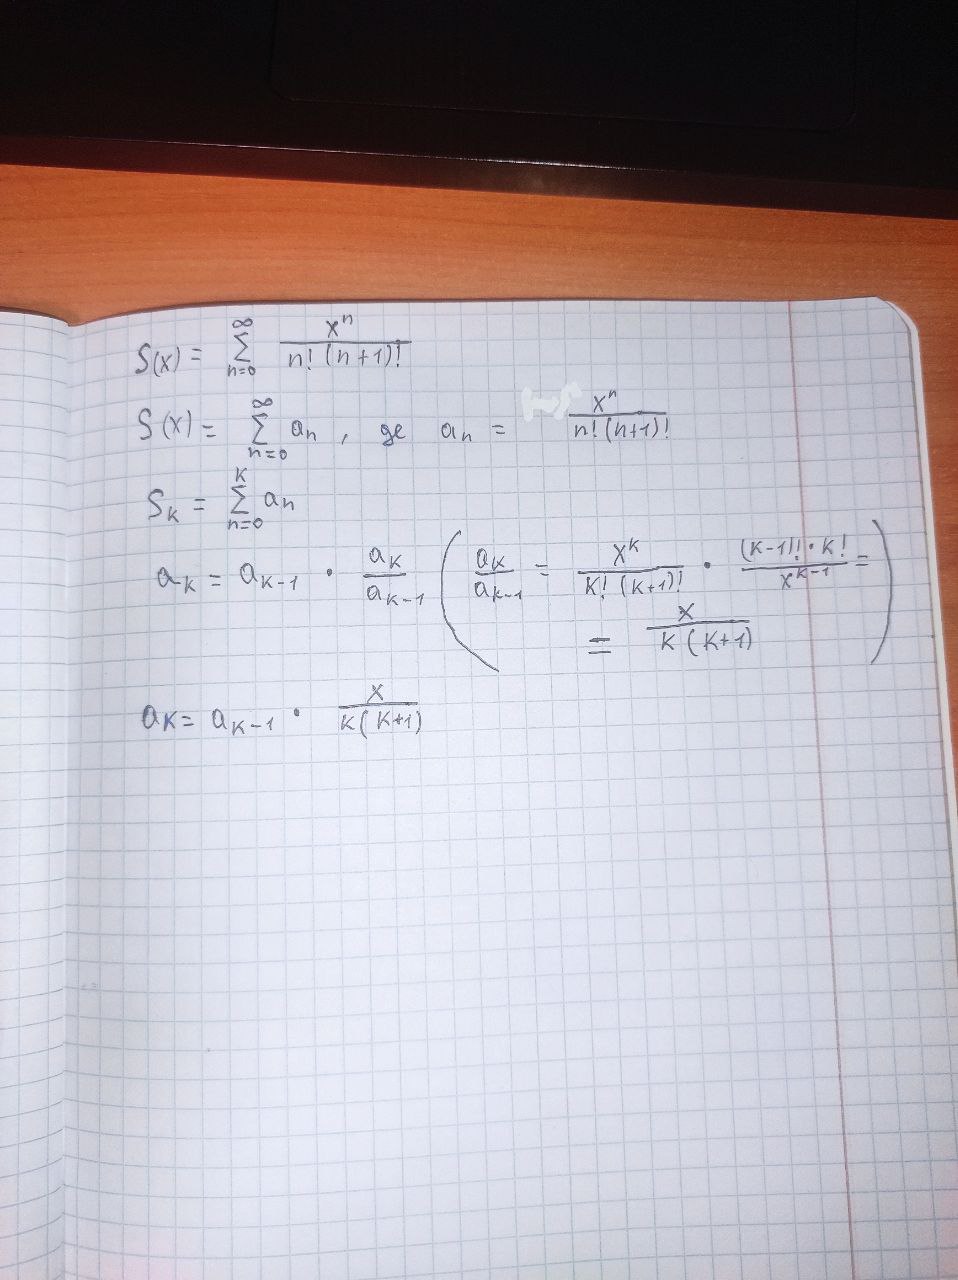 S(x) = ∑_{n=0}^{∞} x^n / (n! (n+1)!)
S(x) = ∑_{n=0}^{∞} a_n , де a_n = x^n / (n! (n+1)!)
S_k = ∑_{n=0}^{k} a_n
a_k = a_{k-1} · a_k / a_{k-1} ( a_k / a_{k-1} = x^k / (k! (k+1)!) · ((k-1)! · k!) / x^{k-1} =
= x / (k (k+1)) )
a_k = a_{k-1} · x / (k (k+1))